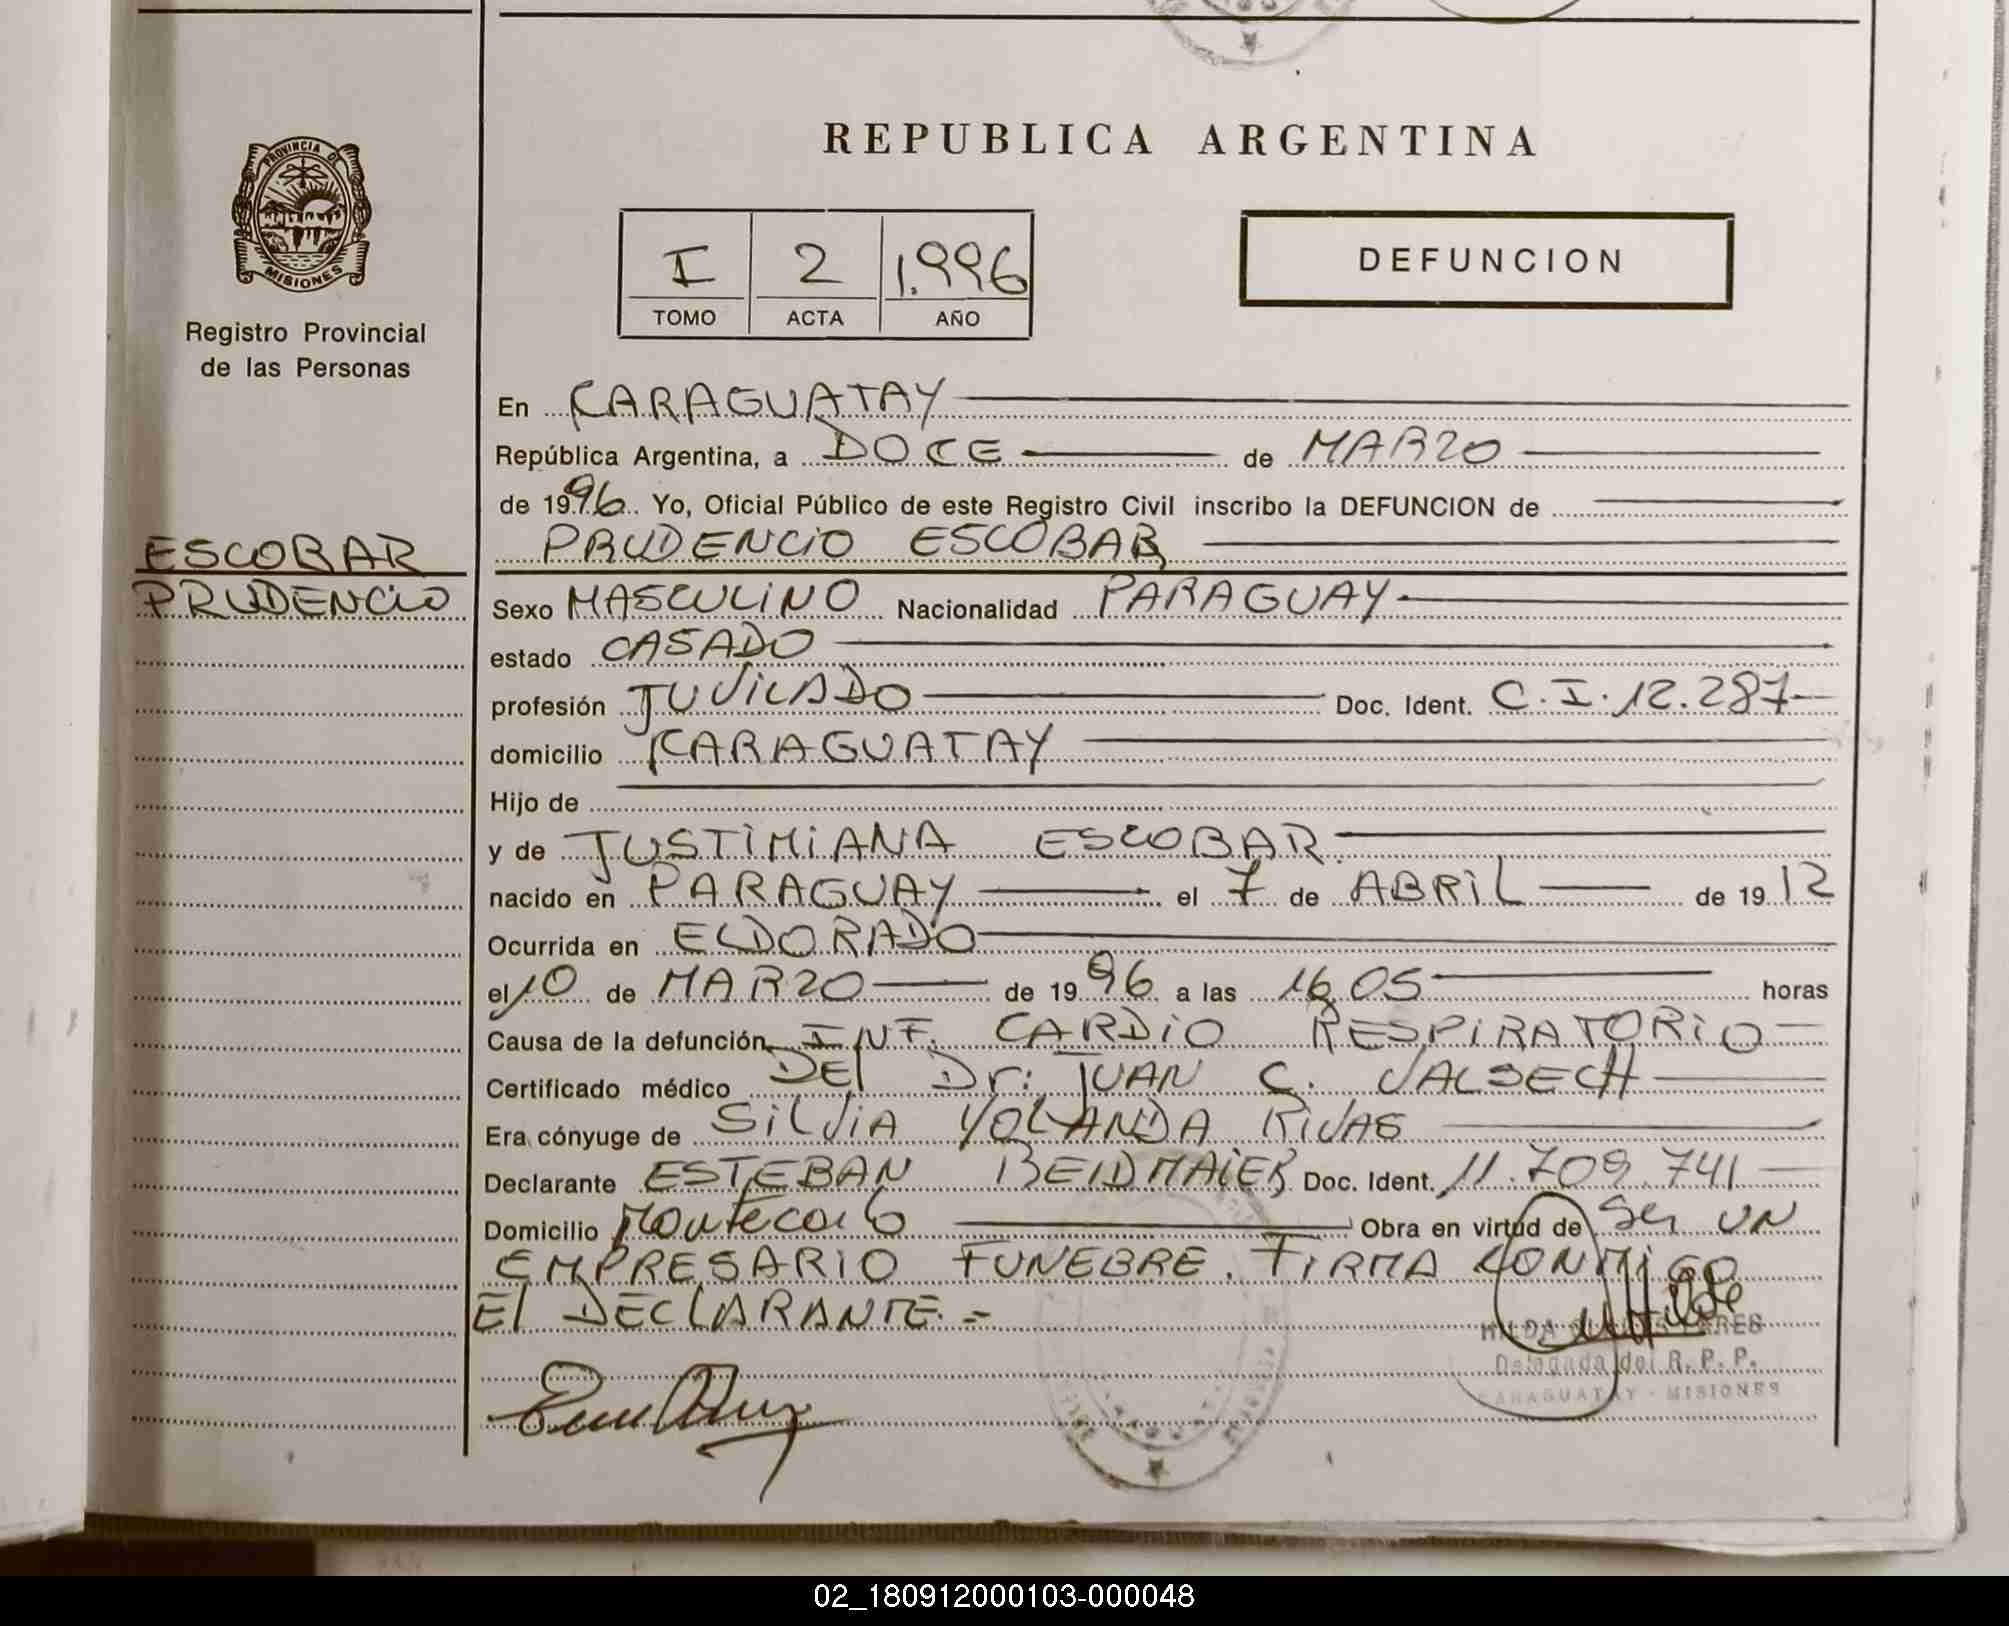 REPUBLICA ARGENTINA
PROVINCIA DE
MISIONES
Registro Provincial
de las Personas
I 2 1.996
TOMO ACTA AÑO
DEFUNCION
En CARAGUATAY
República Argentina, a DOCE de MARZO
de 1996. Yo, Oficial Público de este Registro Civil inscribo la DEFUNCION de
PRUDENCIO ESCOBAR
ESCOBAR
PRUDENCIO
Sexo MASCULINO Nacionalidad PARAGUAY
estado CASADO
profesión JUVILADO Doc. Ident. C.I. 12.287
domicilio CARAGUATAY
Hijo de
y de JUSTIMIANA ESCOBAR.
nacido en PARAGUAY el 7 de ABRIL de 1912
Ocurrida en ELDORADO
el 10 de MARZO de 1996 a las 16,05 horas
Causa de la defunción INF. CARDIO RESPIRATORIO
Certificado médico DEl Dr: JUAN C. VALSECH
Era cónyuge de SILVIA YOLANDA RIVAS
Declarante ESTEBAN BEIDMAIER Doc. Ident. 11.709.741
Domicilio Montecarlo Obra en virtud de Ser UN
EMPRESARIO FUNEBRE. FIRMA CONMIGO
El DECLARANTE.=
HILDA
Delegada del R. P. P.
CARAGUATAY - MISIONES
02_180912000103-000048